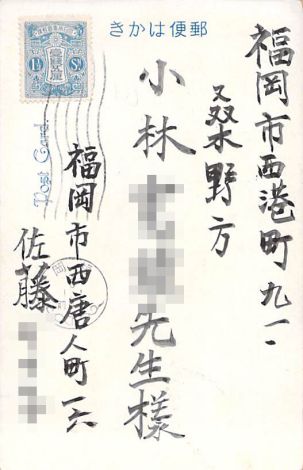 郵便はかき
福岡市西港町九一
桑野方
小林 先生様
福岡市西唐人町一六
佐藤
1½ Sn
Post Card